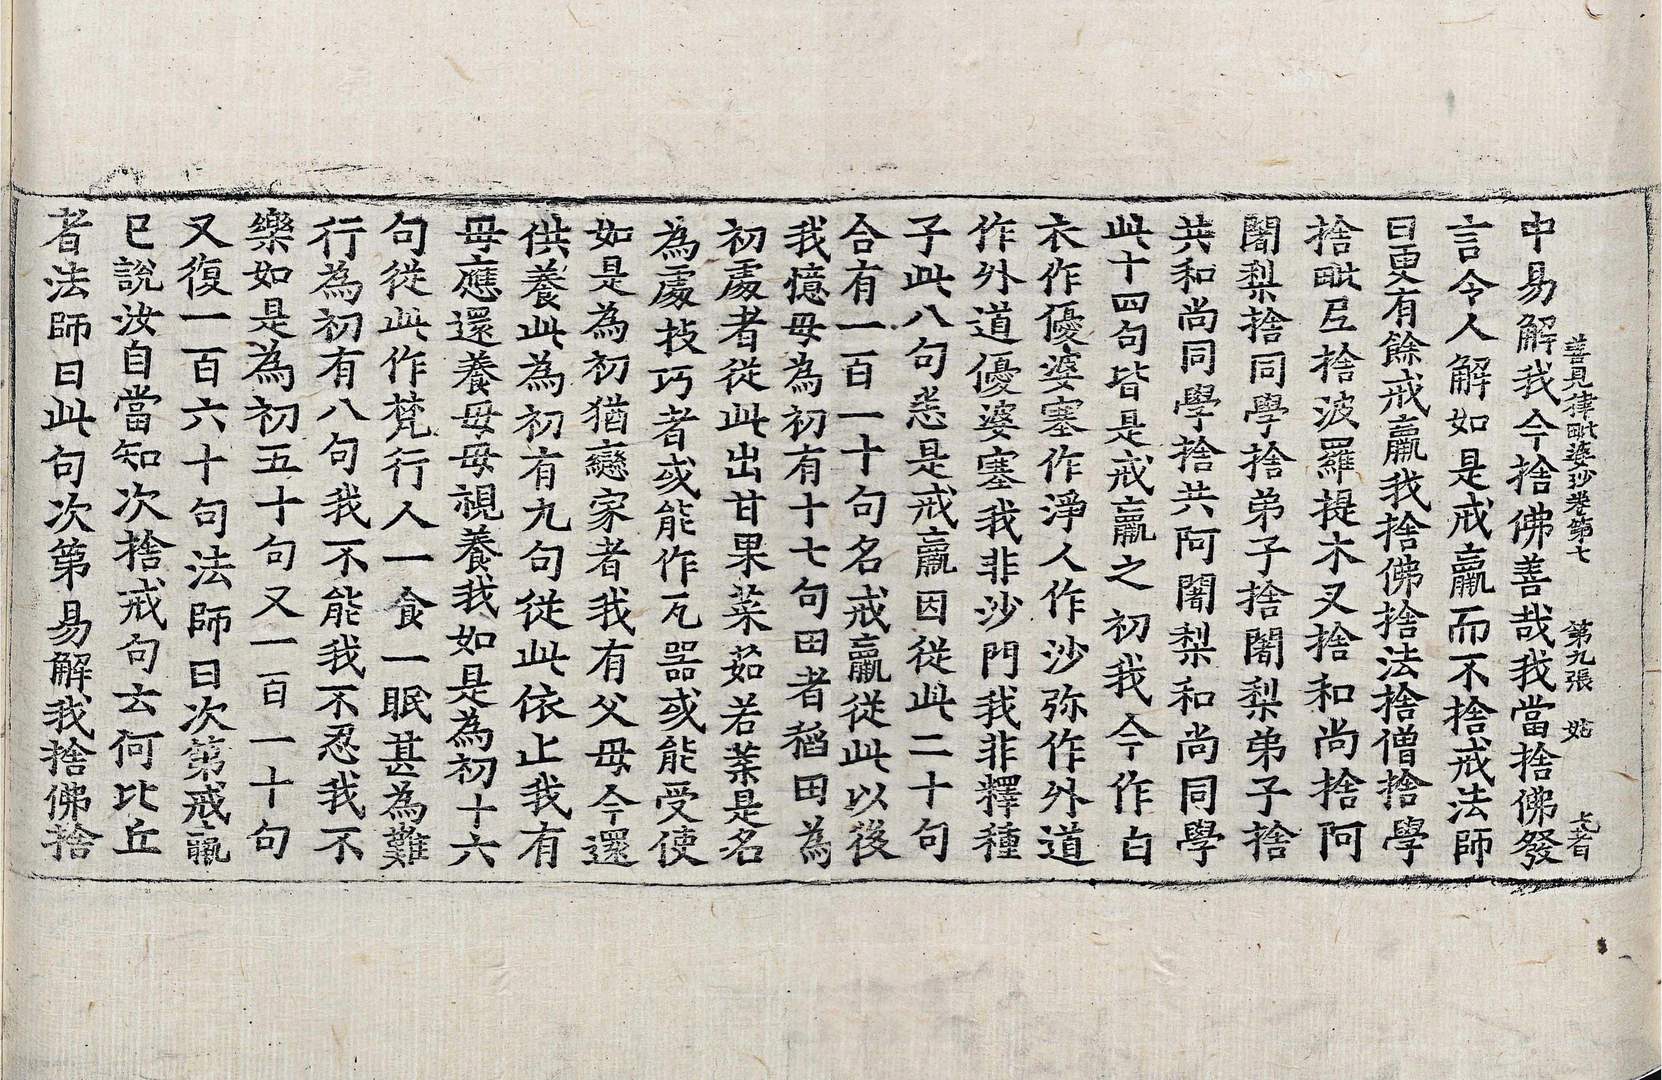 善見律毗婆沙卷第七 第九張 姑
中易解我今捨佛善哉我當捨佛發
言令人解如是戒羸而不捨戒法師
曰更有餘戒羸我捨佛捨法捨僧捨學
捨毗尼捨波羅提木叉捨和尚捨阿
闍梨捨同學捨弟子捨闍梨弟子捨
共和尚同學捨共阿闍梨和尚同學
此十四句皆是戒羸之初我今作白
衣作優婆塞作淨人作沙弥作外道
作外道優婆塞我非沙門我非釋種
子此八句悉是戒羸因從此二十句
合有一百一十句名戒羸從此以後
我憶母為初有十七句田者稻田為
初處者從此出甘果菜茹若葉是名
為處技巧者或能作瓦器或能受使
如是為初猶戀家者我有父母今還
供養此為初有九句從此依止我有
母應還養母母視養我如是為初十六
句從此作梵行人一食一眠甚為難
行為初有八句我不能我不忍我不
樂如是為初五十句又一百一十句
又復一百六十句法師曰次第戒羸
已說汝自當知次捨戒句云何比丘
者法師曰此句次第易解我捨佛捨